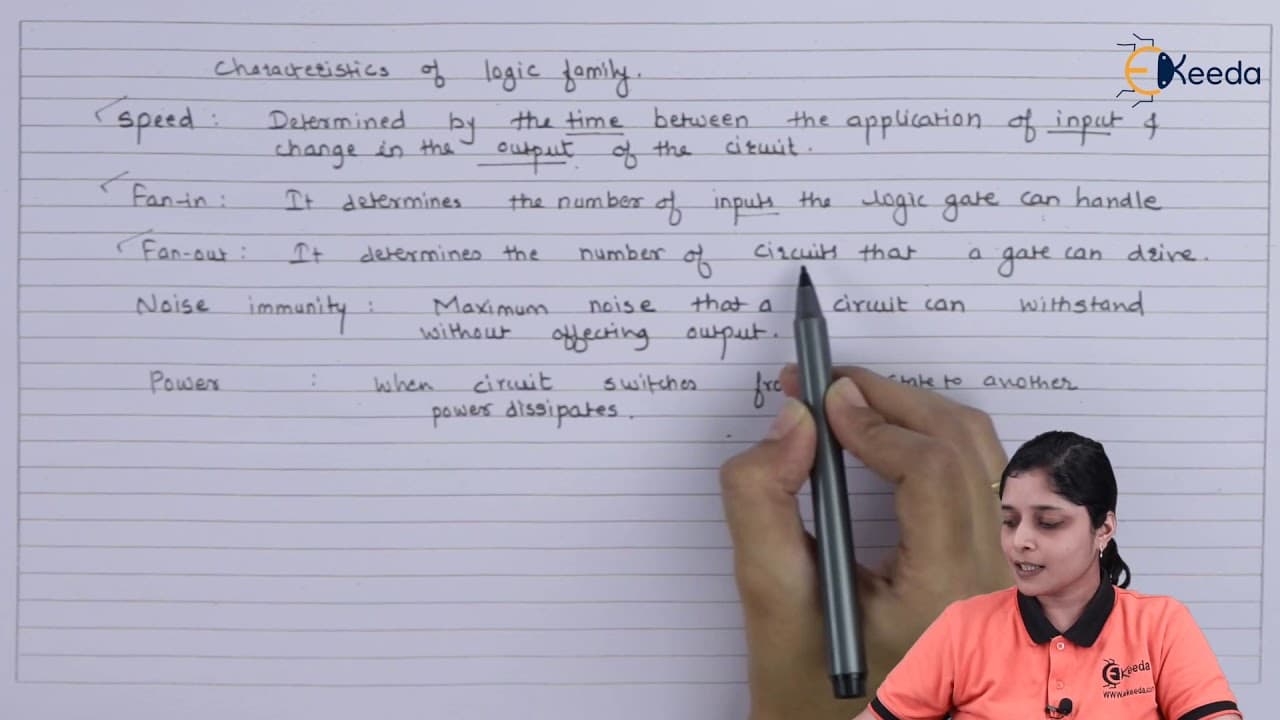 Characteristics of logic family.
Speed : Determined by the time between the application of input &
change in the output of the circuit.
Fan-in : It determines the number of inputs the logic gate can handle
Fan-out : It determines the number of circuits that a gate can drive.
Noise immunity : Maximum noise that a circuit can withstand
without affecting output.
Power : when circuit switches state to another
power dissipates.
EKeeda
EKeeda